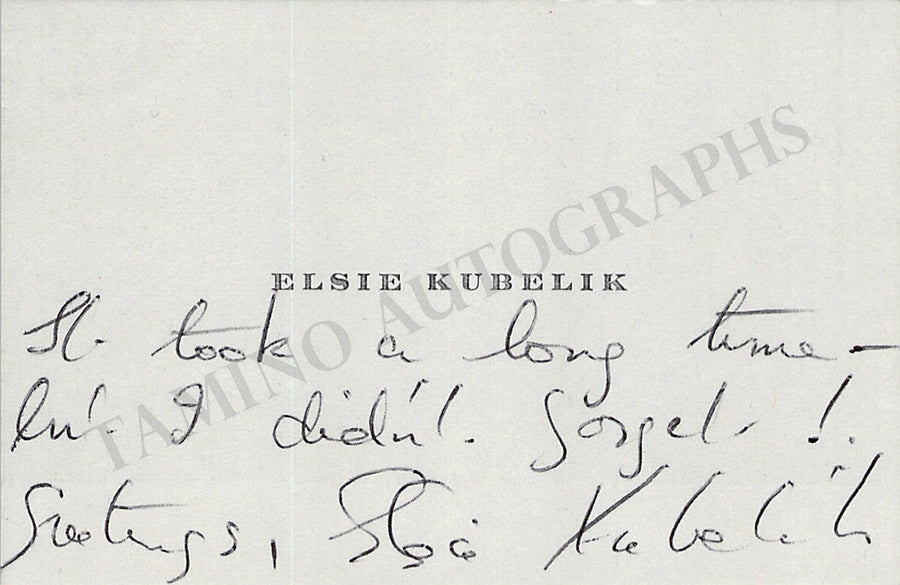 ELSIE KUBELIK
It took a long time –
but I didn't forget !
Greetings, Elsie Kubelik
TAMINO AUTOGRAPHS